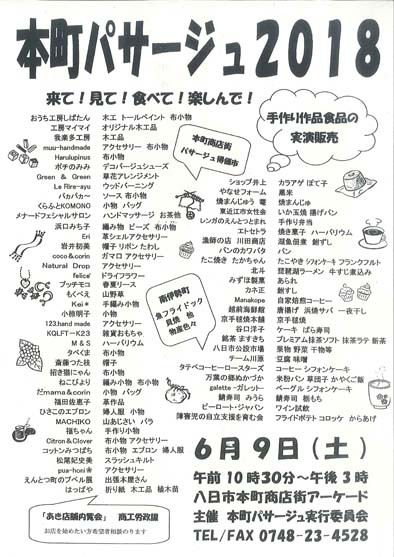 本町パサージュ2018
来て!見て!食べて!楽しんで!
手作り作品食品の
実演販売
本町商店街
パサージュ得価市
おうち工房しばたん 木工 トールペイント 布小物
工房マイマイ オリジナル木工品
音楽多工房 木工品
muu-handmade アクセサリー 布小物
Harulupinus 布小物
ポチのみみ デコパージュシューズ
Green & Green 草花アレンジメント
Le Rire-ayu ウッドバーニング
パカパカ~ ソース 布小物
くらふとKOMONO 小物 バッグ
メナードフェイシャルサロン ハンドマッサージ お茶他
浜口みち子 編み物 ビーズ 布小物
Eri 革シェルアクセサリー
岩井初美 帽子 リボン たわし
coco&corin ガマロ アクセサリー
Natural Drop アクセサリー
felice' ドライフラワー
プッチモコ 春夏リース
もくべえ 山野草
Kei* 手編み小物
小椋明子 小物
123.hand made アクセサリー
KQLFT-K23 雑貨おもちゃ
M&S ハーバリウム
タペくま 布小物
斎藤つた枝 帽子
招き猫にゃん 布小物
ねこびより 編み小物 布小物
だmama&corin 小物 バッグ
福田佐恵子 革作品
ひさこのエプロン 婦人服 小物
MACHIKO 山あじさい バラ
福ちゃん 手作り小物
Citron&Clover 布小物 アクセサリー
コットンみつばち 布小物 エプロン 婦人服
松尾妃史美 スラッシュキルト
pua-honi* アクセサリー
えんとつ町のプペル展 出張本屋さん
はっぱや 折り紙 木工品 植木苗
南伊勢町
魚フライドック
貝焼 他
物産色々
ショップ井上 カラアゲ ぽて子
やなせフォーム 黒米
焼まんじゅう 菴 焼まんじゅう
東近江市女性会 いか玉焼 揚げパン
レンガのえんとつまえ 手作り弁当
エトセトラ 焼き菓子 ハーバリウム
漁師の店 川田商店 湖魚佃煮 鮒ずし
パンのカフカ パン
たこ焼き たかちゃん たこやき シフォンケーキ フランクフルト
北斗 琵琶湖ラーメン 牛すじ煮込み
みずほ製菓 あられ
カネ正 鮒ずし
Manakope 自家焙煎コーヒー
越前海鮮館 唐揚げ 浜焼サバ 一夜干し
京手毬本舗 京手毬焼
谷口洋子 ケーキ ぱら寿司
銘茶 ますきち プレミアム抹茶ソフト 抹茶ラテ 新茶
八日市公設市場 果物 野菜 干物等
チーム川原 豆腐 味噌
タテベコーヒーロースターズ コーヒー シフォンケーキ
万葉の郷ぬかづか 米粉パン 草団子 かやくご飯
palette-ガーレット- ベーグル シフォンケーキ
鯖寿司 みうら 鯖寿司 栃もち
ピーロート・ジャパン ワイン試飲
障害児の自立支援を育む会 フライドポテト コロッケ からあげ
「あき店舗内覧会」 商工労政課
お店を始めたい方希望者相談のります
6月9日(土)
午前10時30分~午後3時
八日市本町商店街アーケード
主催 本町パサージュ実行委員会
TEL/FAX 0748-23-4528